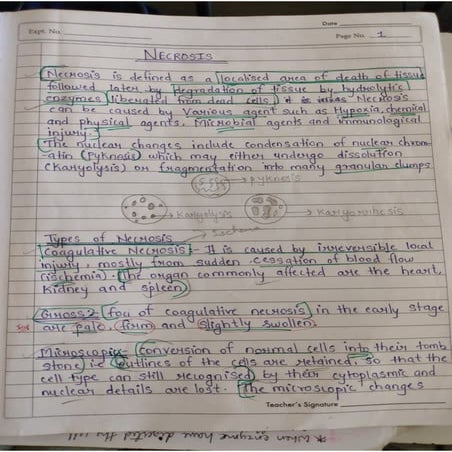 Date
Expt. No.
Page No. 1
NECROSIS
Necrosis is defined as a localised area of death of tissue
followed later by degradation of tissue by hydrolytic
enzymes liberated from dead cells. Necrosis
can be caused by various agent such as Hypoxia, chemical
and physical agents, Microbial agents and immunological
injury.
The nuclear changes include condensation of nuclear chrom-
atin (Pyknosis) which may either undergo dissolution
(Karyolysis) or fragmentation into many granular clumps
→ pyknosis
→ Karyolysis
→ Karyorrhesis
Types of Necrosis
Coagulative Necrosis:- It is caused by irreversible local
injury, mostly from sudden cessation of blood flow
(ischemia). The organ commonly affected are the heart,
kidney and spleen
Gross:- foci of coagulative necrosis in the early stage
are pale, firm and slightly swollen.
Microscopic: Conversion of normal cells into their tomb
stone i.e outlines of the cells are retained, so that the
cell type can still recognised by their cytoplasmic and
nuclear details are lost. The microscopic changes
Teacher's Signature
* When enzyme have digested the cell